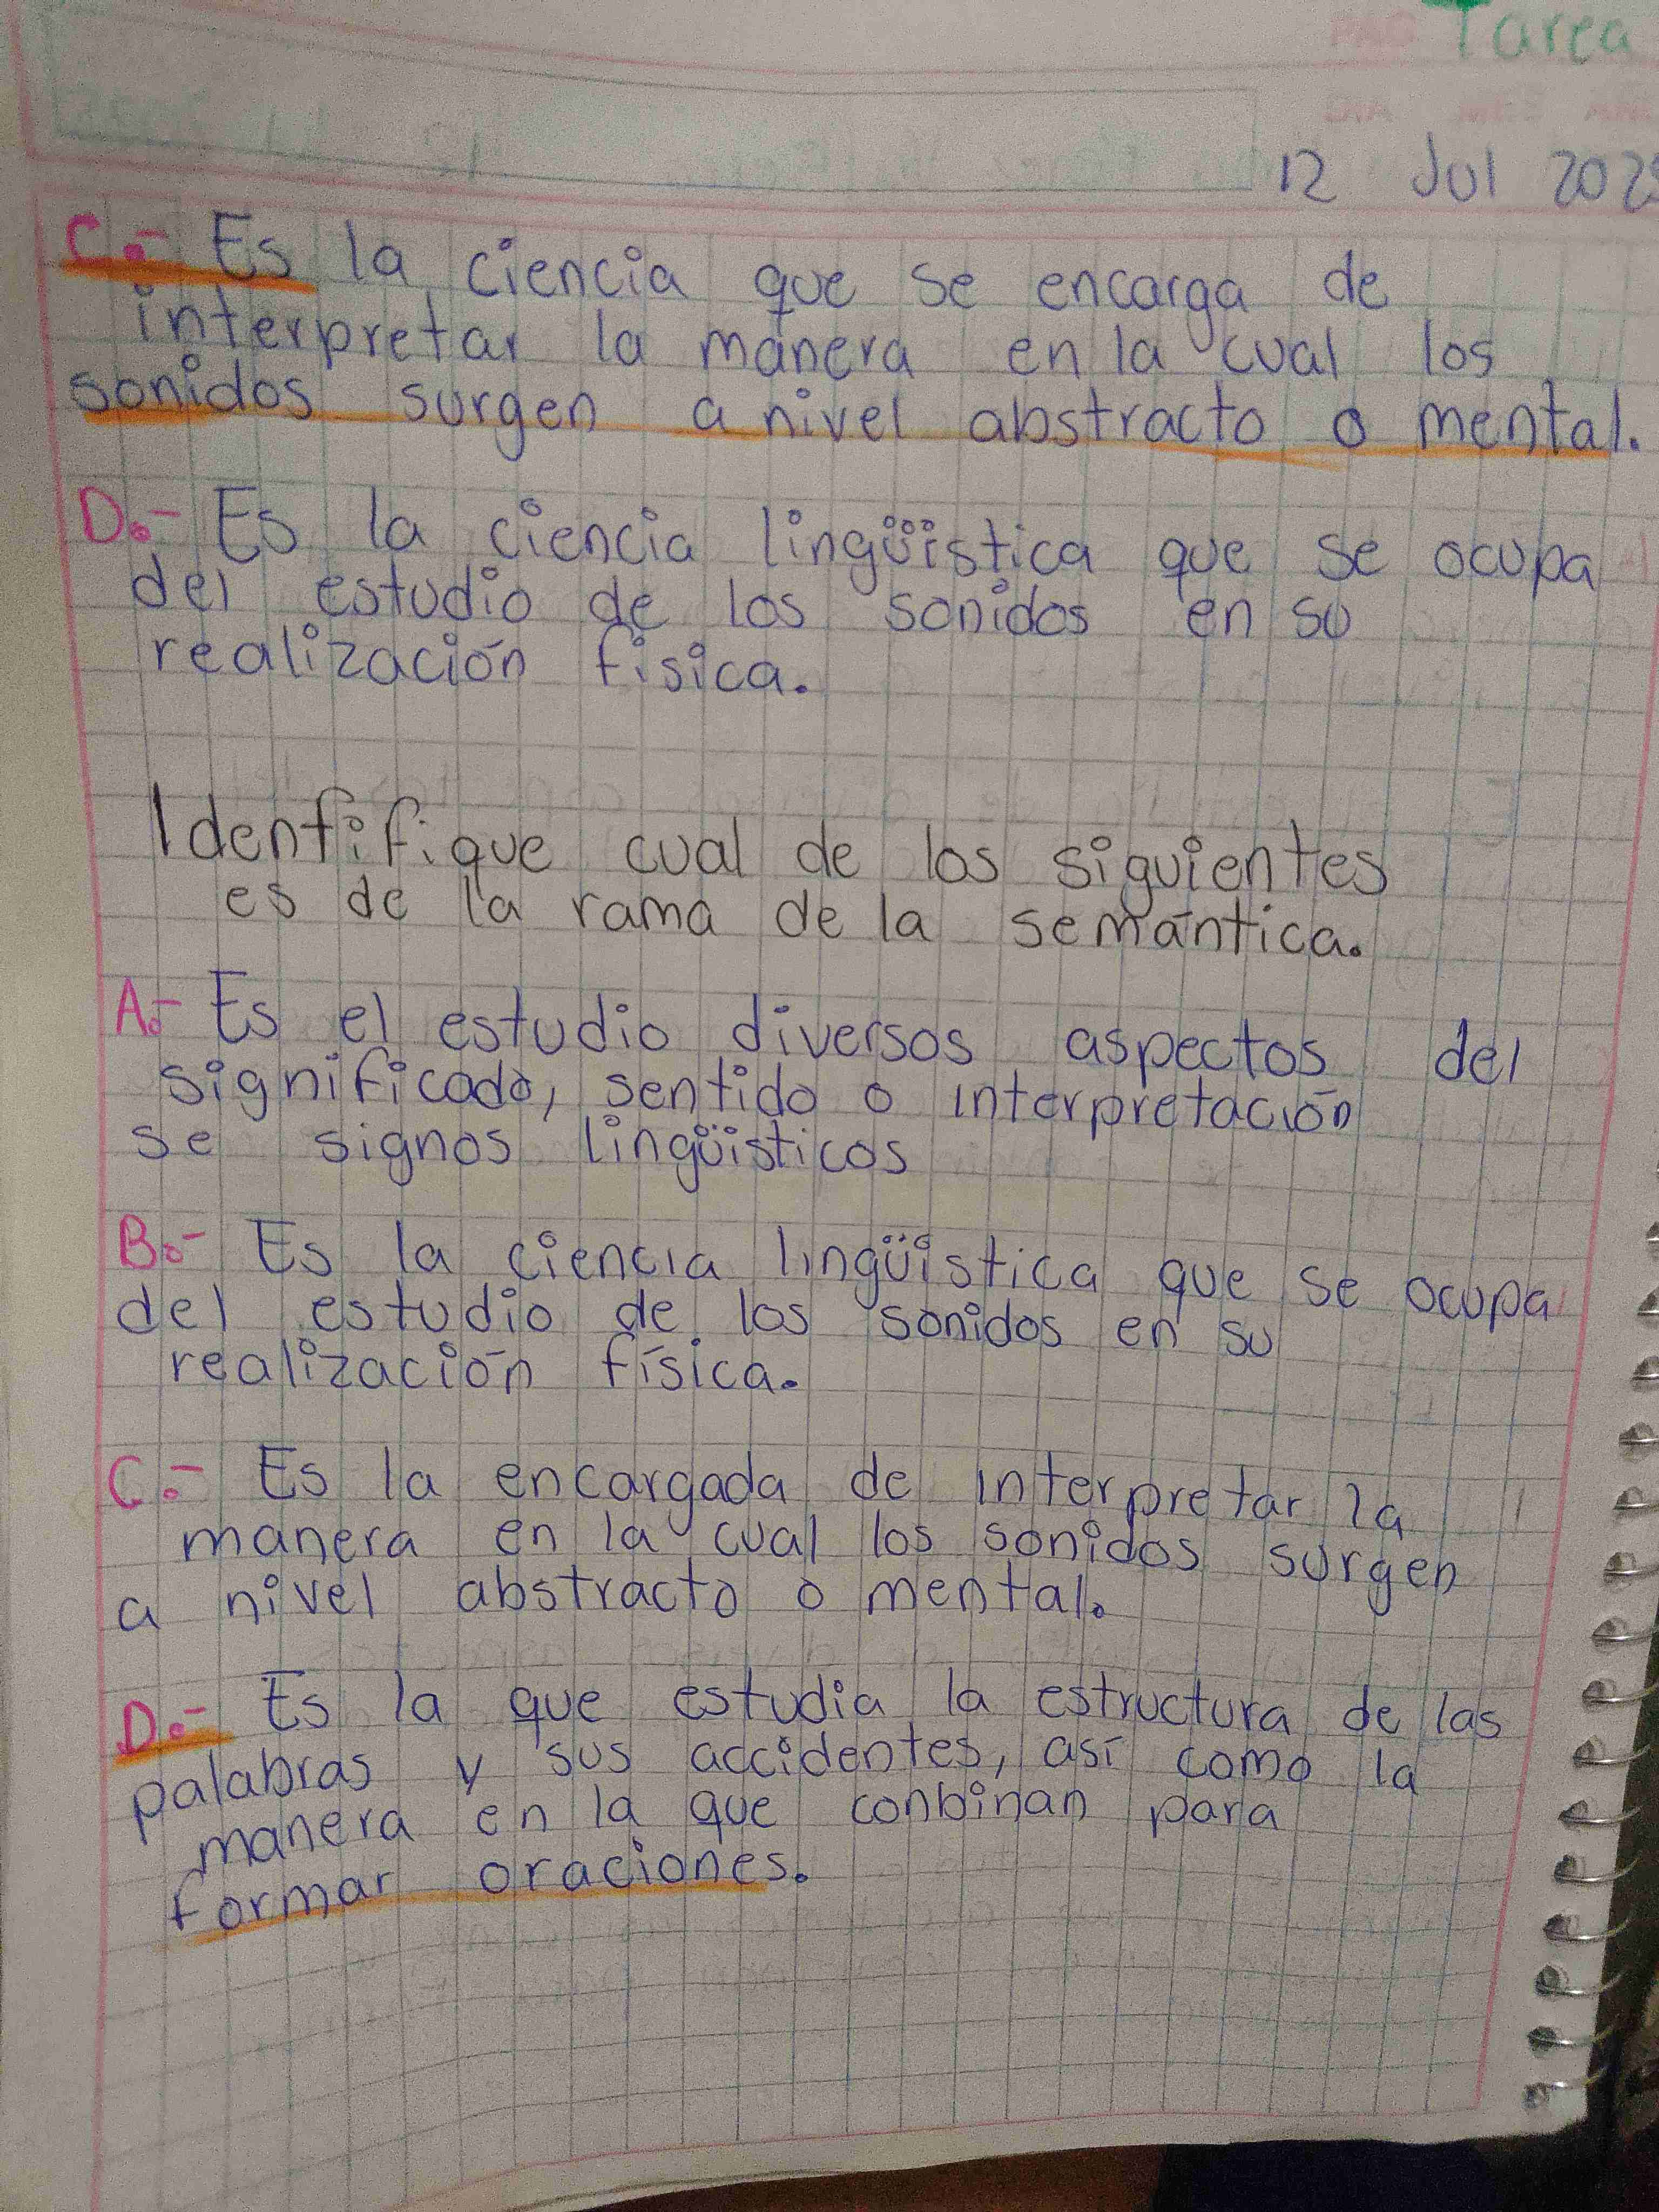 Tarea
12 Jul 202
C.- Es la ciencia que se encarga de
interpretar la manera en la cual los
sonidos surgen a nivel abstracto o mental.
D.- Es la ciencia lingüistica que se ocupa
del estudio de los sonidos en su
realización fisica.
Identifique cual de los siguientes
es de la rama de la semántica.
A.- Es el estudio diversos aspectos del
significado, sentido o interpretación
se signos lingüisticos
B.- Es la ciencia lingüistica que se ocupa
del estudio de los sonidos en su
realización física.
C.- Es la encargada de interpretar la
manera en la cual los sonidos surgen
a nivel abstracto o mental.
D.- Es la que estudia la estructura de las
palabras y sus accidentes, así como la
manera en la que conbinan para
formar oraciones.